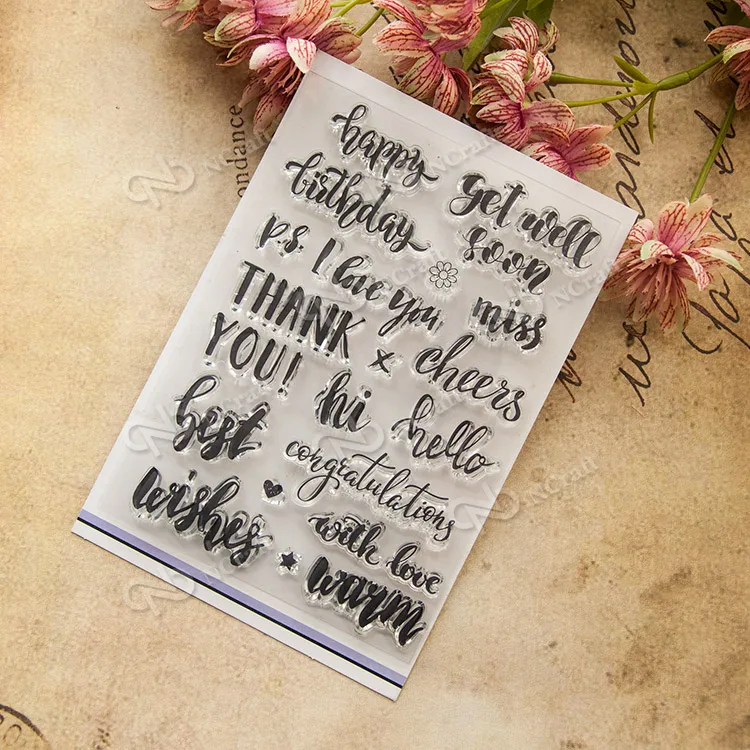 happy
birthday
get well
soon
p.s. I love you
miss
THANK
YOU!
x
cheers
hi
hello
best
wishes
congratulations
with love
warm
ndance
NCraft
NCraft
NCraft
NCraft
NCraft
NCraft